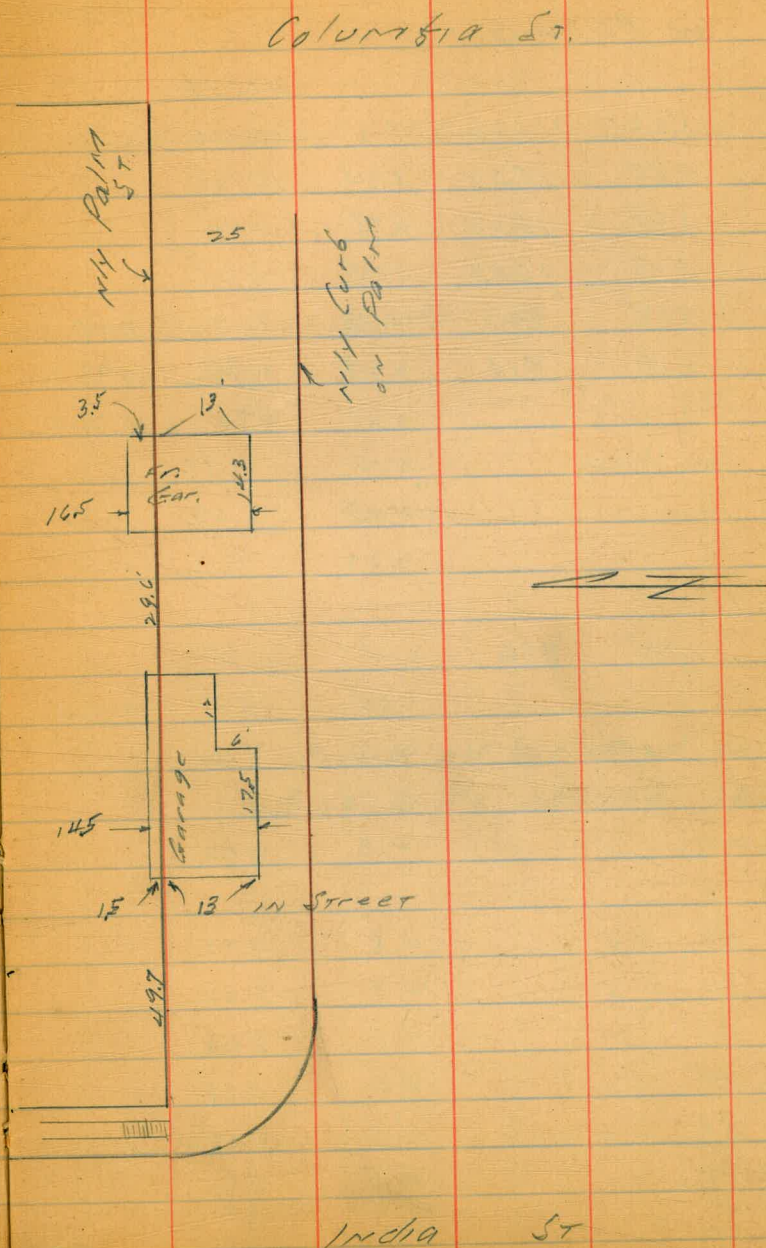 Columbia St.
Nly Palm
St.
25
Nly Curb
on Palm
3.5
13
Gar.
14.3
16.5
29.6
12
6
Garage
17.5
14.5
1.5
13 IN Street
49.7
India St